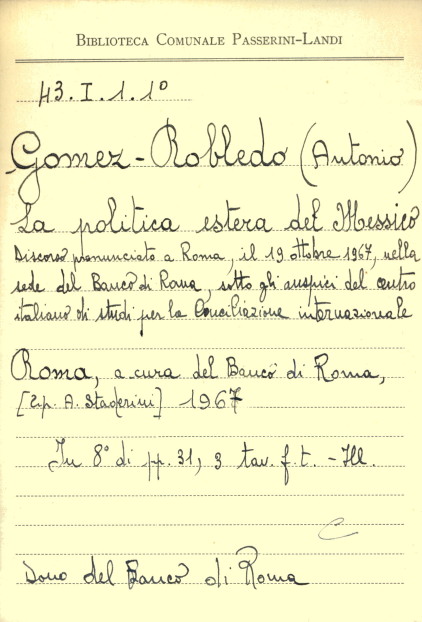 BIBLIOTECA COMUNALE PASSERINI-LANDI
43.I.1.1º
Gomez-Robledo (Antonio)
La politica estera del Messico
Discorso pronunciato a Roma, il 19 ottobre 1967, nella
sede del Banco di Roma, sotto gli auspici del centro
italiano di studi per la Conciliazione internazionale
Roma, a cura del Banco di Roma,
[Tip. A. Staderini] 1967
In 8º di pp. 31, 3 tav. f. t. - Ill.
C
Dono del Banco di Roma